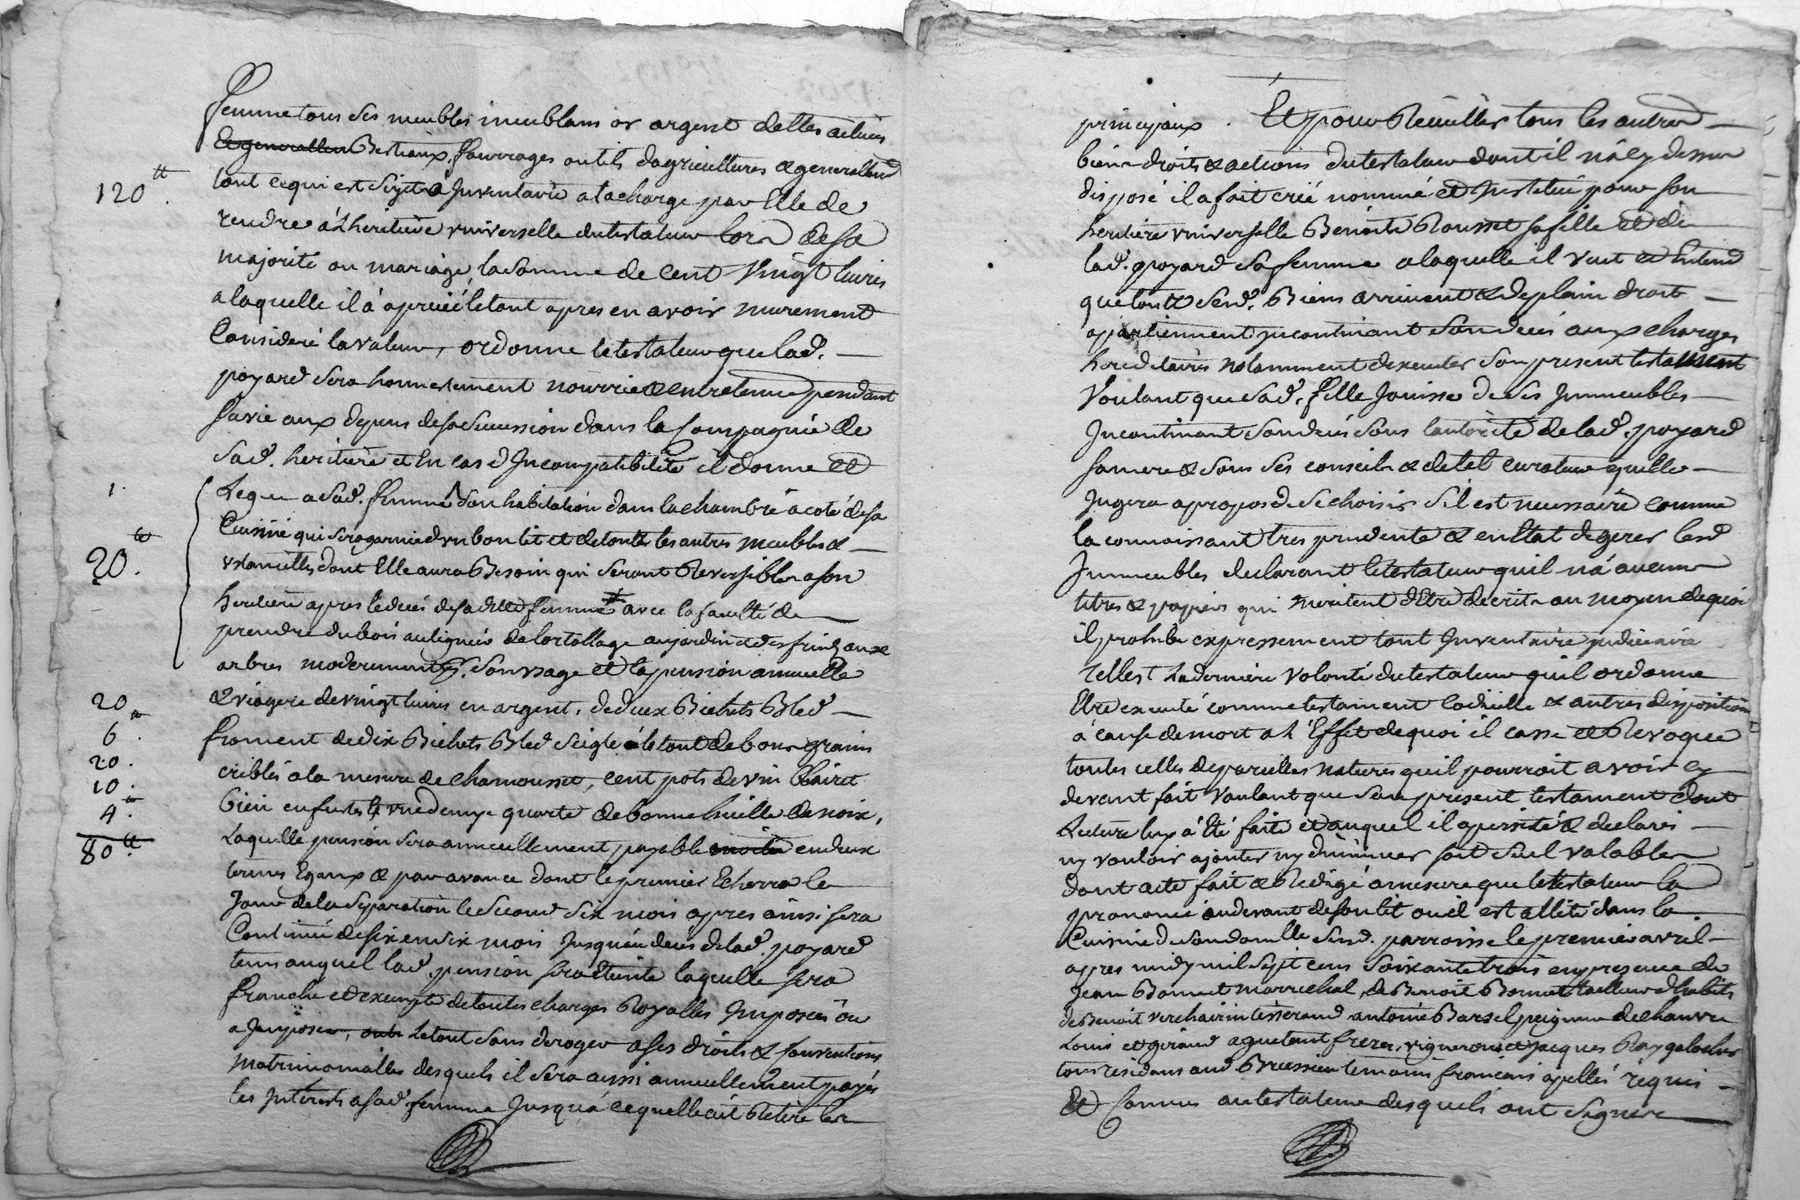 femme tous ses meubles meublans or argent dettes actives
et generallem Bestiaux, fourrages outils dagricultures & generallem
tout ce qui est sujet a Inventaire a la charge par Elle de
120tt
rendre a lheritiere universelle du testateur lors de sa
majorité ou mariage, la somme de cent vingt livres
a laquelle il à aprecié le tout apres en avoir murement
Consideré la valeur, ordonne le testateur que lad.
poyard sera honnetement nourrie & entretenue pendant
sa vie aux depens de sa succession dans la Compagnie de
sad. heritiere et En cas d Incompatibilité il donne et
1.
Legue a sad. femme son habitation dans la chambre a coté de sa
Cuisine qui sera garnie dun bon lit et de touts les autres meubles &
20tt.
ustancilles dont Elle aura Besoin qui seront Reversibles a son
heritiere apres le deces de sa ditte femme avec la faculté de
prendre du bois au lignier de lortollage au jardin et des fruits aux
arbres moderement p. son usage et la pension annuelle
20
& viagere de vingt livres en argent, de deux Bichets Bled
6.
froment de dix Bichets Bled seigle le tout de bons grains
20.
criblés a la mesure de chamousset, cent pots de vin Clairet
10.
bien enfusté & une demye quarte de bonne huille de noix,
4.
80tt
Laquelle pension sera annuellement payable en deux
termes Egaux & par avance dont le premier Echerra le
Jour de la separation le second six mois apres ainsi sera
Continué de six en six mois Jusquau deces de lad. poyard
tems auquel lad. pension sera Eteinte laquelle sera
franche et exempte de toutes charges Royalles Imposées ou
a Imposer, le tout sans deroger a ses droits & conventions
matrimonialles desquels il sera aussi annuellement payés
les Interests a sad. femme Jusqu'a ce quelle ait Retiré les
principaux. Et pour Recuillir tous les autres
biens droits & actions du testateur dont il n'a cy dessus
disposé il a fait creé nommé et Institué pour son
heritiere universelle Benoite Rousset sa fille et de
lad. poyard sa femme a laquelle il veut et Entend
que touts sesd. Biens arrivent & de plein droit
apartiennent Incontinant son deces aux charges
hereditaires notamment dexecuter son present testament
Voulant que sad. fille Jouisse de ses Immeubles
Incontinant son deces sous l'autorité de lad. poyard
sa mere & sous ses conseils & de tel curateur quelle
Jugera apropos de se choisir s'il est necessaire comme
la connoissant tres prudente & en Etat de gerer lesd
Immeubles declarant le testateur quil n'a aucuns
titres & papiers qui meritent dEtre decrits au moyen de quoi
il prohibe expressement tout Inventaire judiciaire
telle est La derniere volonté du testateur quil ordonne
Etre executé comme testament codicille & autres dispositions
à cause de mort a l'Effet de quoi il casse et Revoque
toutes celles de pareilles natures quil pourroit avoir cy
devant fait voulant que son present testament dont
Lecture luy a été faite et auquel il a persisté & declaré
ny vouloir ajouter ny diminuer soit seul valable
dont acte fait & Redigé a mesure que le testateur la
prononcé au devant de son lit ou il est allité dans la
Cuisine de son domicille susd. parroisse le premier avril
apres midy mil sept cens soixante trois en presence de
Jean Bonnet marechal, de Benoit Bonnet tailleur dhabits
de Benoit verchairin tisserand antoine Barsel peigneur de chanvre
Louis et giraud aguetant freres, vignerons et Jacques Ray galocher
tous residans aud Brussieu temoins francois apellés requis
Et Connus au testateur desquels ont signére